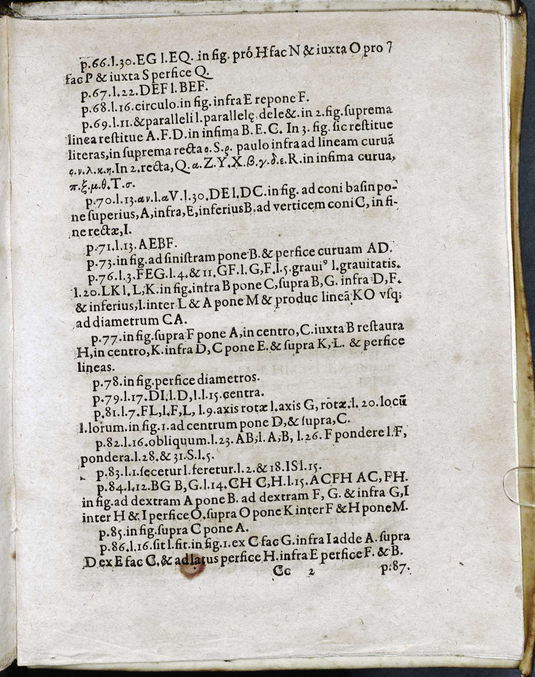 p.66.l.30.EG l.EQ. in fig. pró H fac N & iuxta O pro 7
fac P & iuxta S perfice Q.
p.67.l.22.DEF l.BEF.
p.68.l.16.circulo.in fig. infra E repone F.
p.69.l.11.& paralleli l.parallelę dele &. in 2.fig.suprema
linea restitue A.F.D.in infima B.E.C. In 3. fig. sic restitue
literas,in suprema recta ο.S.ρ. paulo infra ad lineam curuā
In 2.recta,Q.α.Z.Y.X.β.γ.δ.ε.R.in infima curua,
π.ξ.μ.θ.T.σ.
p.70.l.13.αν.l.αV.l.30.DE l.DC.in fig. ad coni basin po-
ne superius,A,infra,E,inferius B.ad verticem coni C, in fi-
ne rectæ,I.
p.71.l.13.AEBF.
p.73.in fig.ad sinistram pone B.& perfice curuam AD.
p.76.l.3.FEG.l.4.& 11.GF.l.G,F,l.5.graui⁹ l.grauitatis.
l.20.LK l,L,K.in fig.infra B pone C,supra B,G. infra D,F.
& inferius,l.inter L & A pone M & produc lineā KO vsq;
ad diametrum CA.
p.77.in fig.supra F pone A,in centro,C.iuxta B restaura
H,in centro,K.infra D,C pone E.& supra K,L. & perfice
lineas.
p.78.in fig.perfice diametros.
p.79.l.17.DI,l.D,l.l.15.centra.
p.81.l.7.FL,l.F,L, l.9.axis rotæ l.axis G, rotæ.l. 20.locū
l.lorum.in fig.1.ad centrum pone D,& supra,C.
p.82.l.16.obliquum.l.23.AB,l.A,B, l.26.F pondere l.F,
pondera.l.28.& 31.S.l.5.
p.83.l.1.secetur l.feretur.l.2.& 18.IS l.15.
p.84.l.12.BG B,G.l.14.CH C,H.l.15.ACFH AC,FH.
in fig.ad dextram A pone B. ad dextram F, G. & infra G,I
inter H & I perfice O.supra O pone K inter F & H pone M.
p.85.in fig.supra C pone A.
p.86.l.16.sit l.fit.in fig.1.ex C fac G.infra I adde A.supra
D ex E fac C.& ad latus perfice H.infra E perfice F. & B.
Cc 2 p.87.